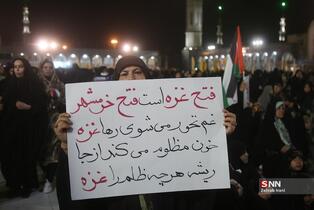 فتح غزه است فتح خرمشهر
غم نخور می شوی رها غزه
خون مظلوم می کند از جا
ریشه هر چه ظلم را غزه
SNN
Zeinab Irani